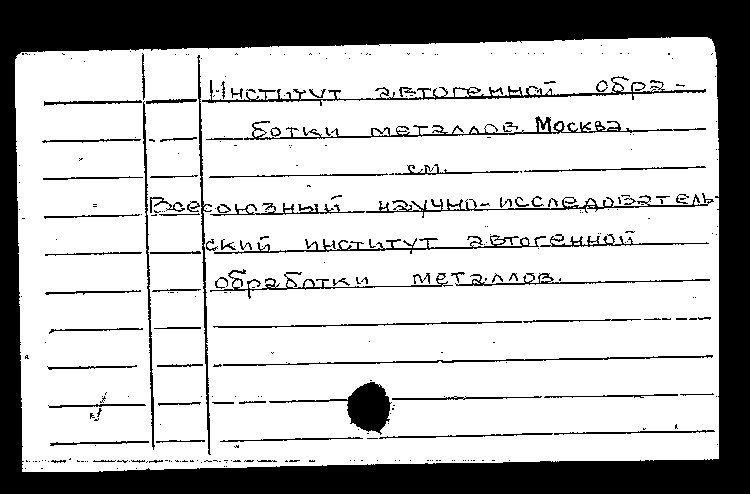 Институт автогенной обра-
ботки металлов. Москва.
см.
Всесоюзный научно-исследователь-
ский институт автогенной
обработки металлов.